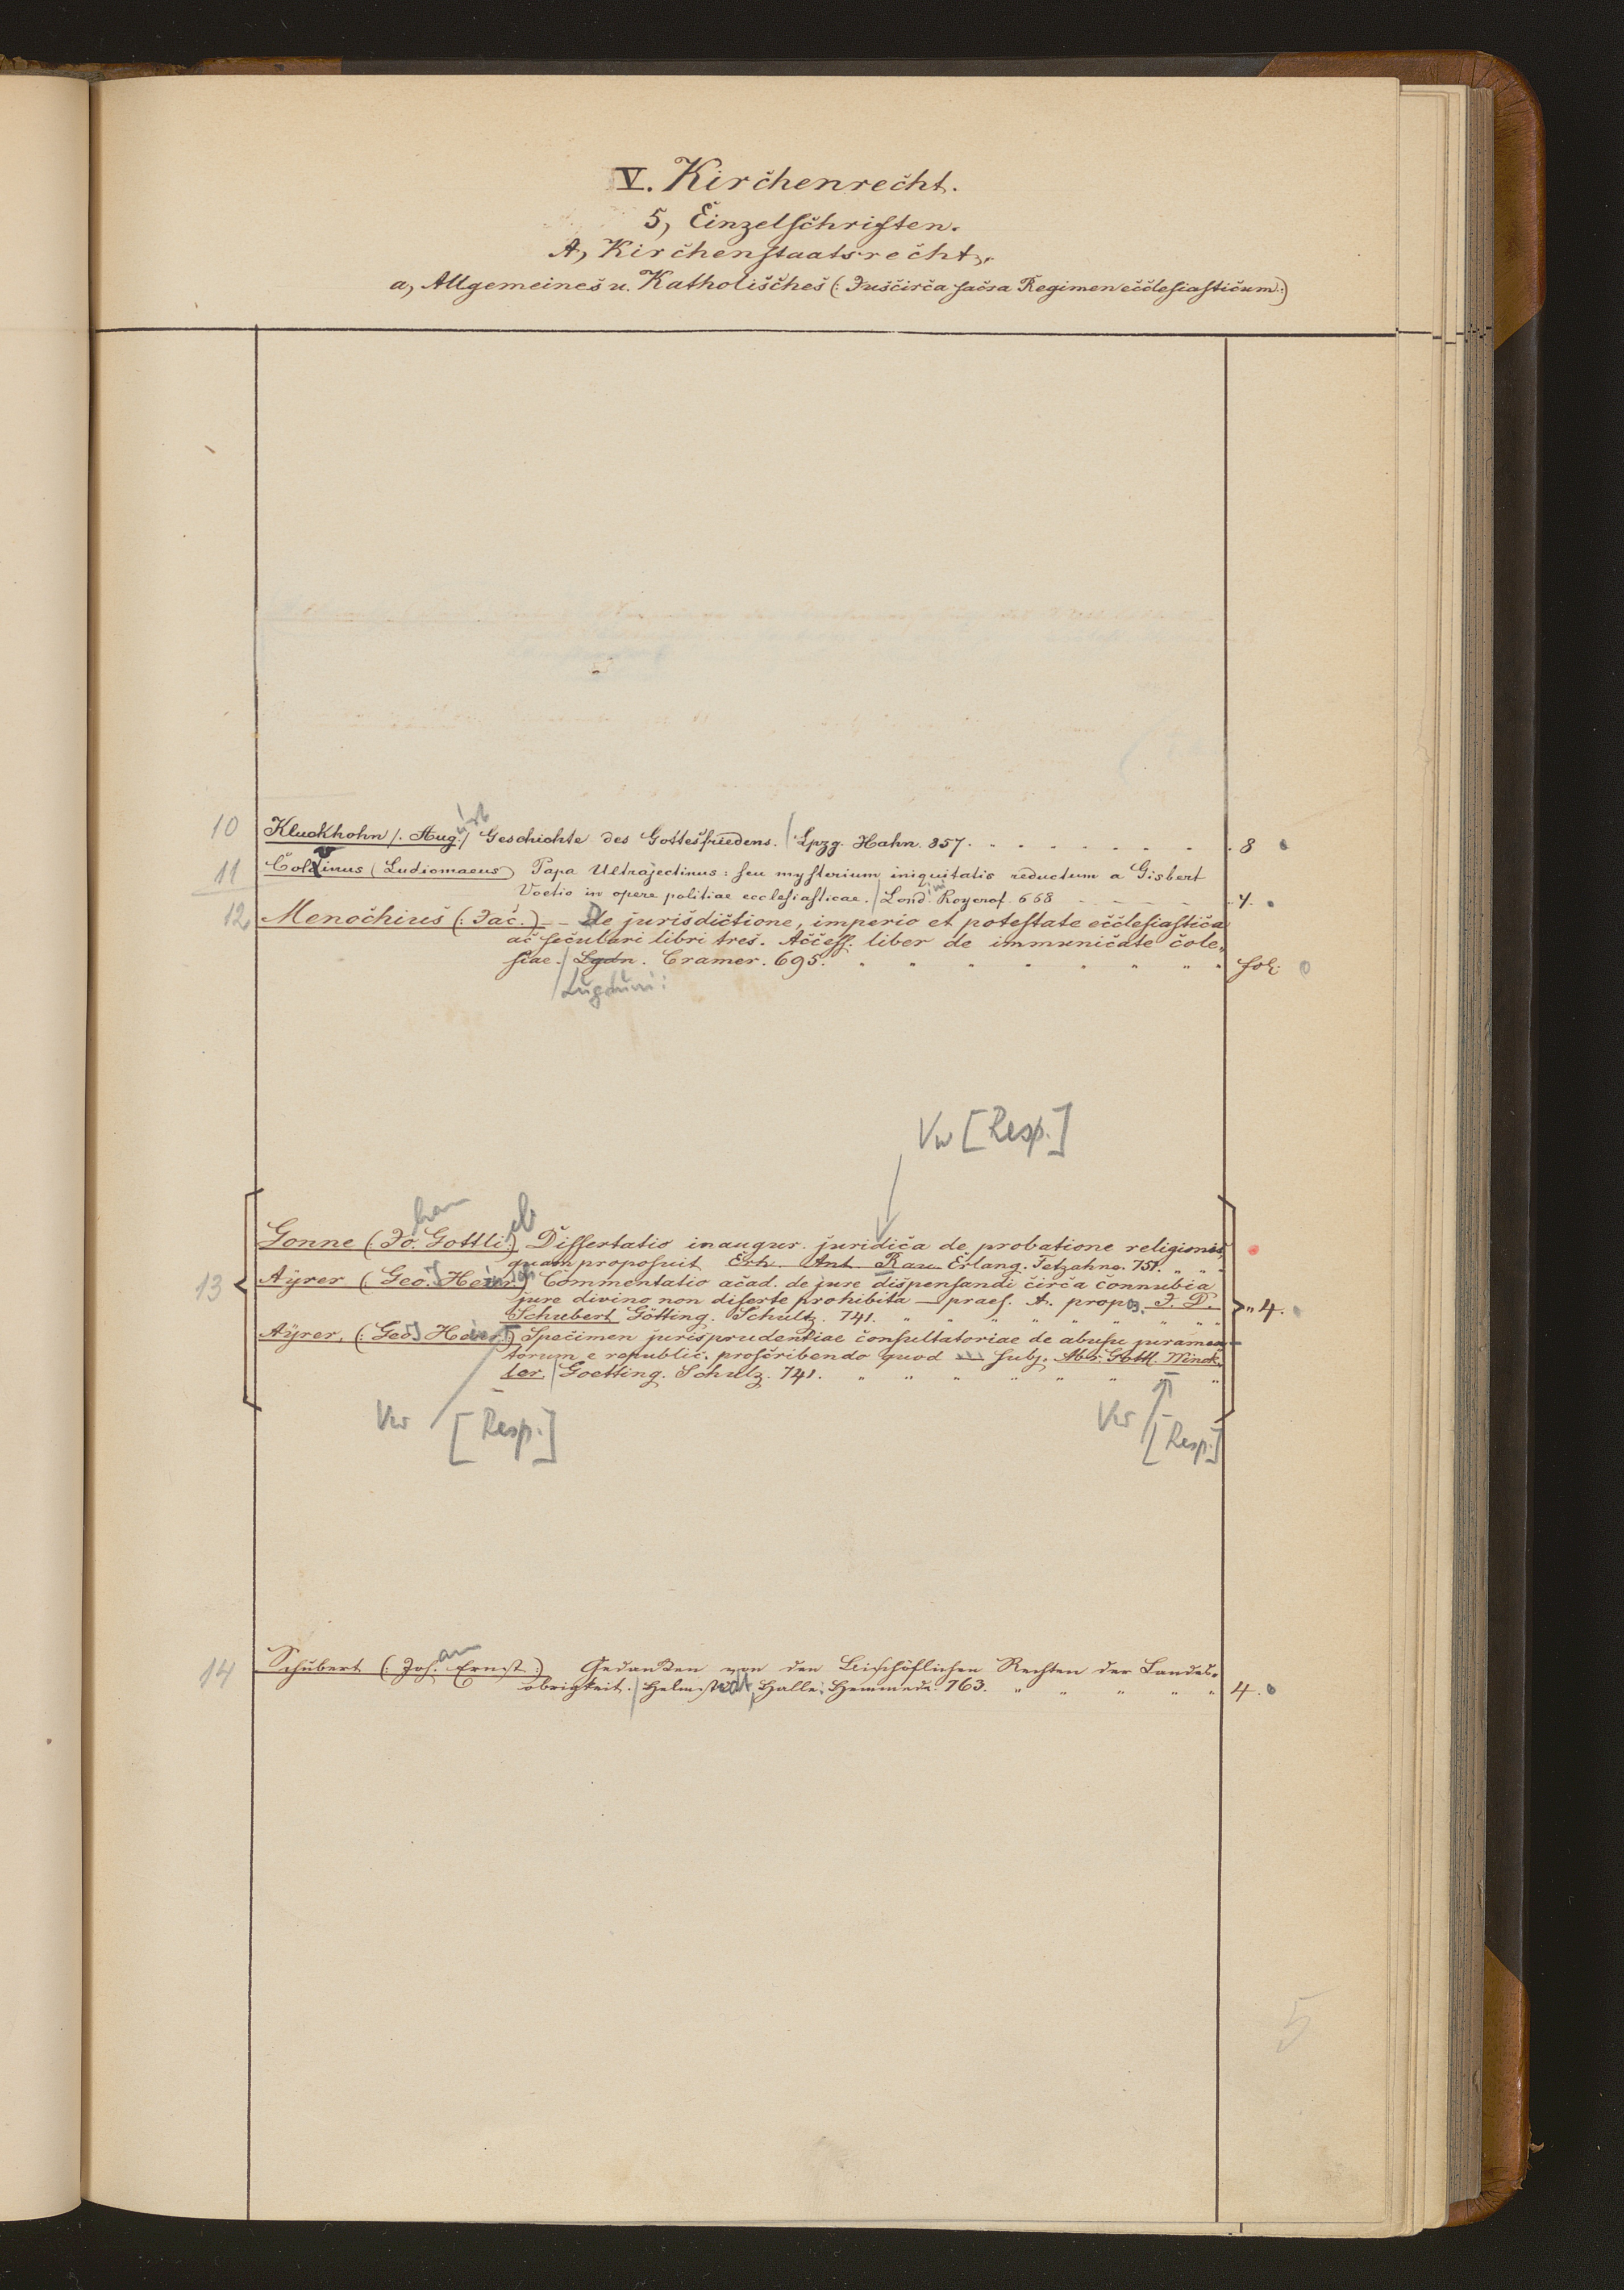 V. Kirchenrecht.
5, Einzelschriften.
A, Kirchenstaatsrecht.
a, Allgemeines u. Katholisches (: Jus circa sacra Regimen ecclesiasticum :)
10 Kluckhohn /: Aug. / Geschichte des Gottesfriedens. / Lpzg. Hahn. 857. 8
11 Colvinus (Ludiomaeus) Papa Ultrajectinus: seu mysterium iniquitatis reductum a Gisbert
Voetio in opere politiae ecclesiasticae. / Lond. Roycrof. 668 4.
12. Menochius (: Jac.) — De jurisdictione, imperio et potestate ecclesiastica
ac seculari libri tres. Access. liber de immunicate ecle-
siae. / Lgdn. Cramer. 695. fol.
/ Lugduni:
Vw [Resp.]
han eb
Gonne (: Jo. Gottli:) Dissertatio inaugur. juridica de probatione religionis
quam proposuit Erh. Ant. Rau Erlang. Tetzschne. 751.
13 Aÿrer (: Geo. Heinr:) Commentatio acad. de jure dispensandi circa connubia
jure divino non diserte prohibita — praes. A. propos. J. P. 4.
Schubert Götting. Schultz. 741.
Aÿrer, (: Geo. Heinr:) Specimen jurisprudentiae consultatoriae de abusu juramen-
torum e republic. proscribendo quod subj. Abr. Gottl. Winck-
ler. / Goetting. Schulz. 741.
Vw [Resp.] Vw [Resp.]
14 Schubert (: Joh. Ernst :) Gedanken von den Bischöflichen Rechten der Landes-
obrigkeit. / Helmstedt, Halle: Hemmerde. 763. 4.
5